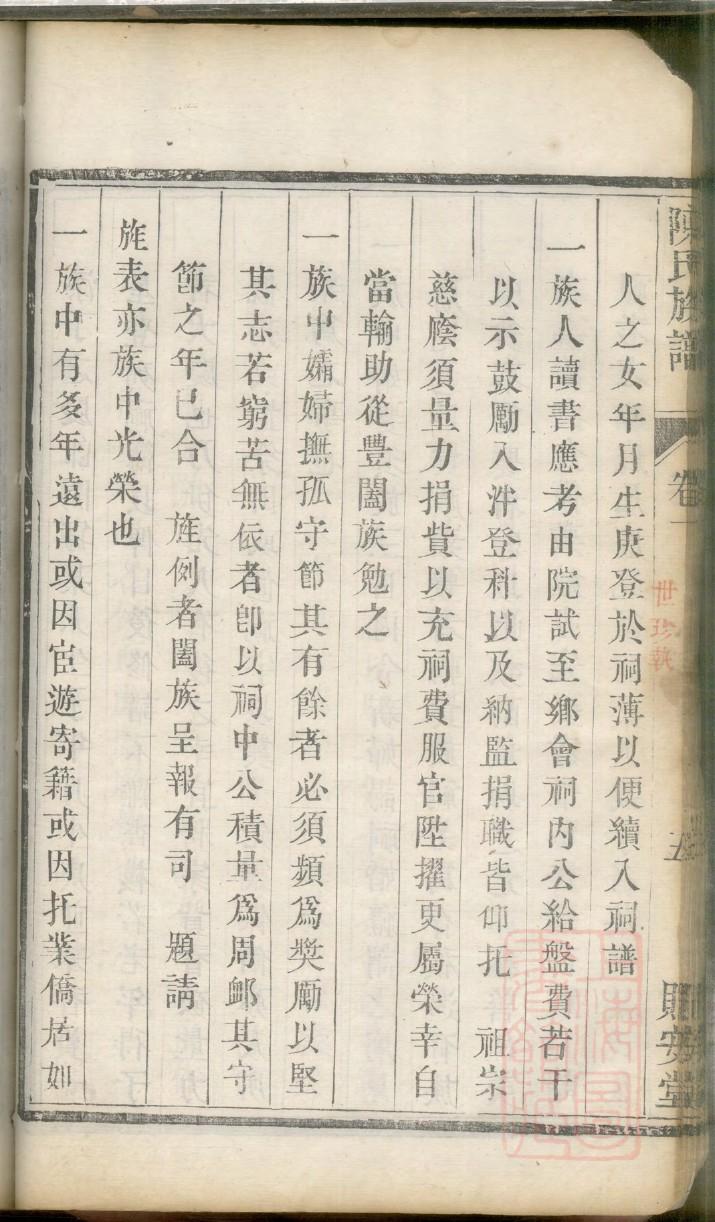 陳氏族譜
卷一
世珍執
五
貽安堂
人之女年月生庚登於祠薄以便續入祠譜
一族人讀書應考由院試至鄉會祠內公給盤費若干
以示鼓勵入泮登科以及納監捐職皆仰托　祖宗
慈廕須量力捐貲以充祠費服官陞擢更屬榮幸自
當輸助從豐闔族勉之
一族中孀婦撫孤守節其有餘者必須頻爲奬勵以堅
其志若窮苦無依者卽以祠中公積量爲周䘏其守
節之年已合　旌例者闔族呈報有司　題請
旌表亦族中光榮也
一族中有多年遠出或因宦遊寄籍或因托業僑居如